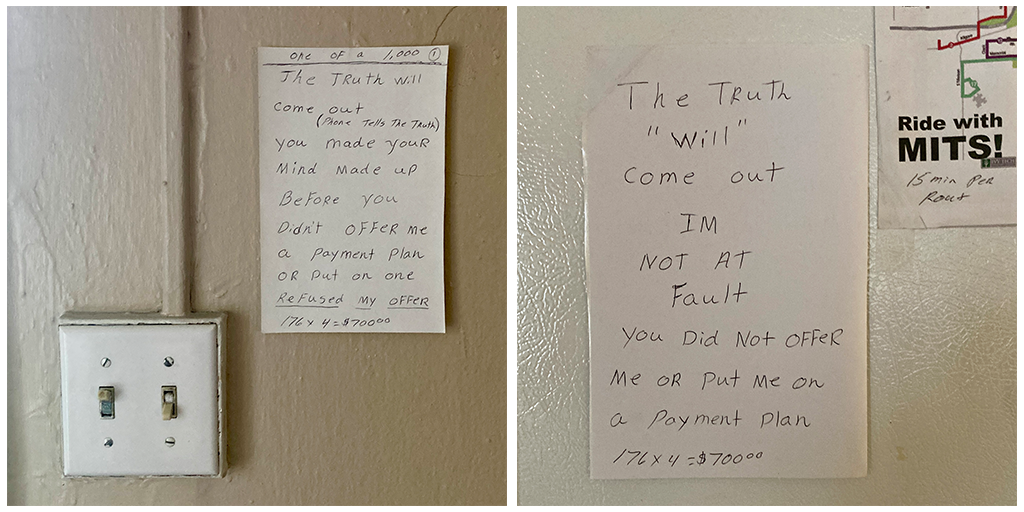 one of a 1,000 ①
The Truth will
come out
(Phone Tells The Truth)
you made youR
Mind Made up
Before you
Didn't OFFeR me
a Payment Plan
OR Put on one
ReFused My OFFeR
176 x 4 = $700⁰⁰
The TRuth
"Will"
Come out
IM
NOT AT
Fault
you Did Not OFFeR
Me OR Put Me on
a Payment Plan
176 x 4 = $700⁰⁰
Ride with
MITS!
15 min Per
Rout